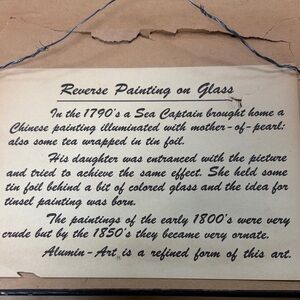 Reverse Painting on Glass
In the 1790's a Sea Captain brought home a
Chinese painting illuminated with mother-of-pearl;
also some tea wrapped in tin foil.
His daughter was entranced with the picture
and tried to achieve the same effect. She held some
tin foil behind a bit of colored glass and the idea for
tinsel painting was born.
The paintings of the early 1800's were very
crude but by the 1850's they became very ornate.
Alumin-Art is a refined form of this art.